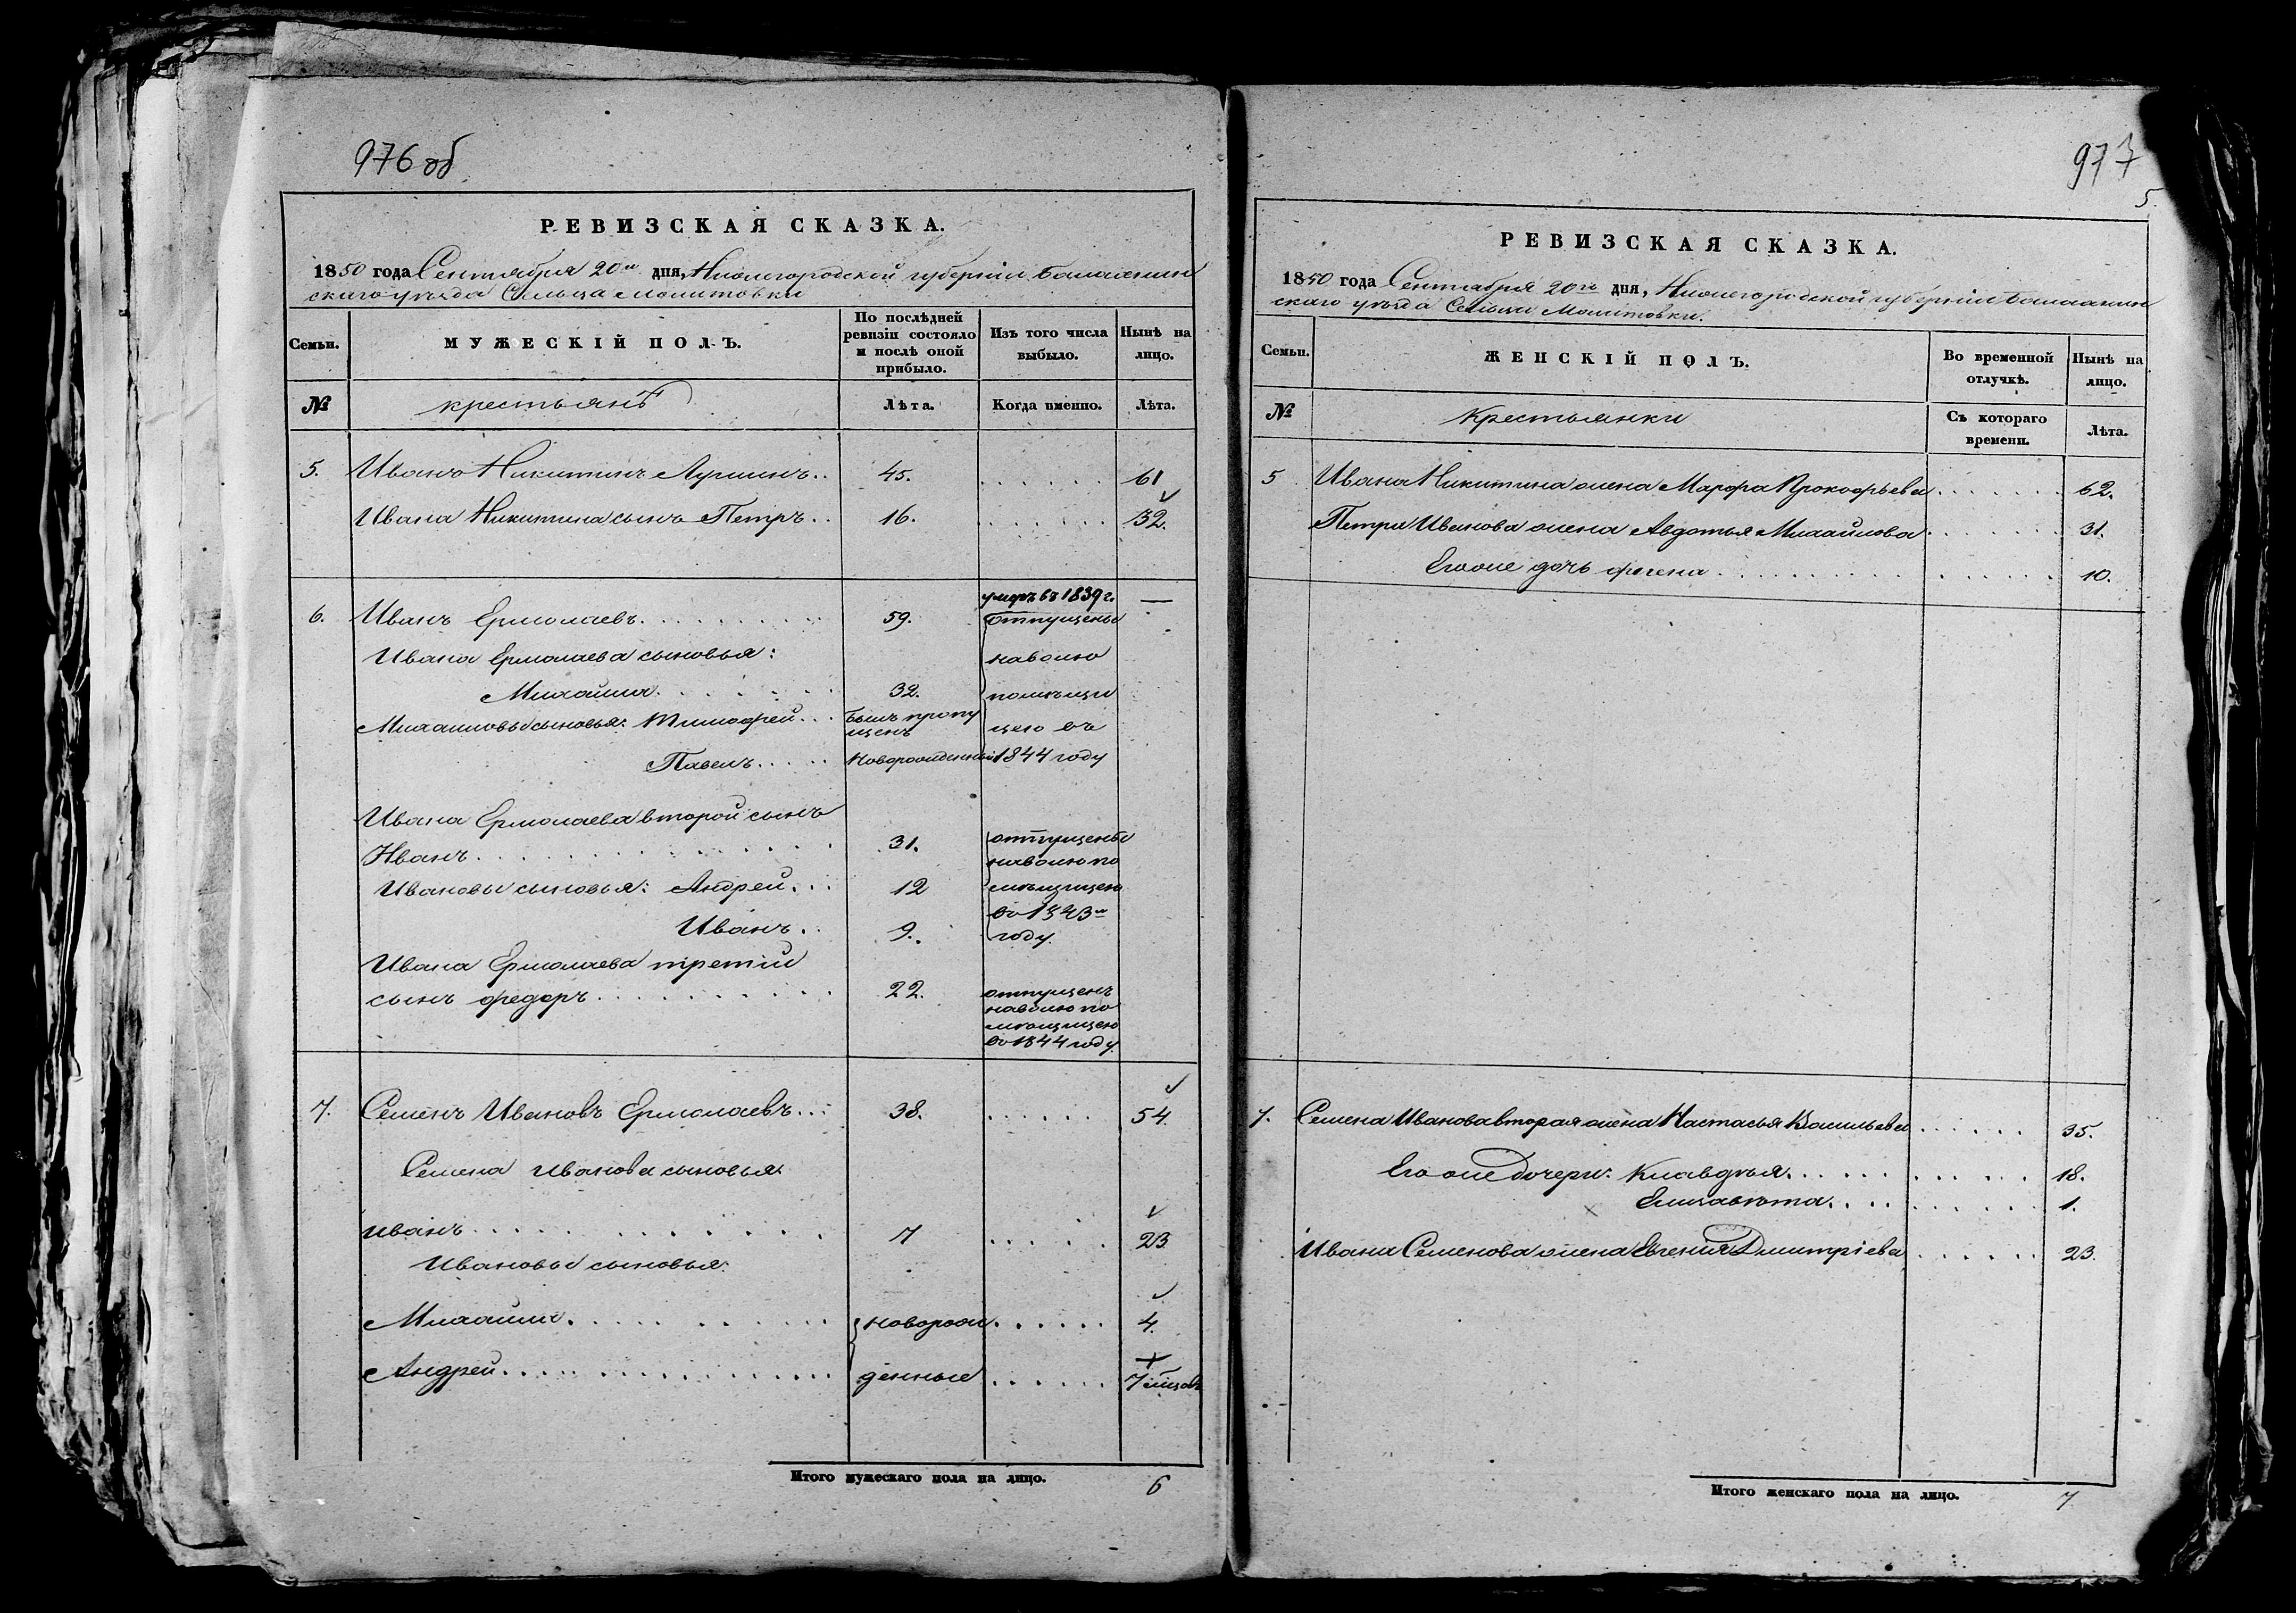 976 об
РЕВИЗСКАЯ СКАЗКА.
1850 года Сентября 20го дня, Нижегородской губерніи Балахнин
скаго уѣзда Сельца Молитовки
Семьи.
МУЖЕСКІЙ ПОЛЪ.
По послѣдней ревизіи состояло и послѣ оной прибыло.
Изъ того числа выбыло.
Нынѣ на лицо.
№
крестьянъ
Лѣта.
Когда именно.
Лѣта.
5. Иванъ Никитинъ 45. 61
Ивана Никитина сынъ Петръ 16. 32.
6. Иванъ Ермолаевъ 59. умеръ въ 1839 г. —
Ивана Ермолаева сыновья:
Михайла 32.
Михаиловы сыновья: Тимофей былъ пропу
щенъ
Павелъ новорожденный
отпущены
на волю
помѣщи
цею въ
1844 году
Ивана Ермолаева второй сынъ
Иванъ 31.
Ивановы сыновья: Андрей 12
Иванъ 9.
отпущены
на волю по
мѣщицею
въ 1843м
году.
Ивана Ермолаева третій
сынъ Федоръ 22.
отпущенъ
на волю по
мѣщицею
въ 1844 году.
7. Семенъ Ивановъ Ермолаевъ 38. 54.
Семена Иванова сыновья:
Иванъ 7 23
Ивановы сыновья:
Михайла новорож 4.
Андрей денные 7 мѣсяц
Итого мужескаго пола на лицо. 6
977
5.
РЕВИЗСКАЯ СКАЗКА.
1850 года Сентября 20го дня, Нижегородской губерніи Балахнин
скаго уѣзда Сельца Молитовки.
Семьи.
ЖЕНСКІЙ ПОЛЪ.
Во временной отлучкѣ.
Нынѣ на лицо.
№
Крестьянки
Съ котораго времени.
Лѣта.
5 Ивана Никитина жена Марфа Прокофьева 62.
Петра Иванова жена Авдотья Михайлова 31.
Его же дочь Фигена 10.
7. Семена Иванова вторая жена Настасья Васильева 35.
Его же дочери: Клавдѣя 18.
Елизавѣта 1.
Ивана Семенова жена Евгенія Дмитріева 23.
Итого женскаго пола на лицо. 7